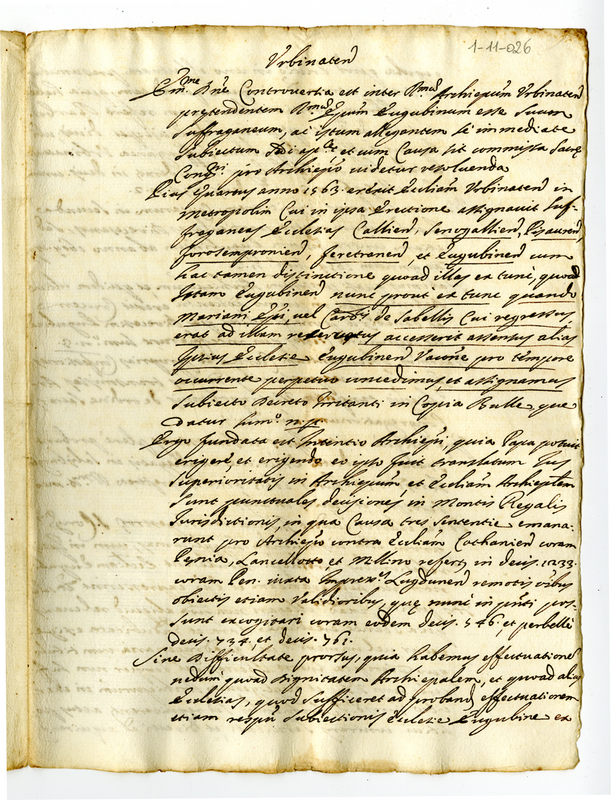 1-11-026
Urbinaten
Em.me D.ne Controversia est inter R.mum Archiepum Urbinaten
pretendentem R.mum Epum Eugubinum esse suum
suffraganeum, ac istum allegantem se immediate
subiectum Sedi ap.cae et cum Causa sit commissa Sacre
Cong.ni pro Archiepo videtur resoluenda
Pius Quartus anno 1563. erexit Eccliam Urbinaten in
Metropolim Cui in ipsa Erectione assignauit suf-
fraganeas Ecclesias Callien, Senogallien, Pisauren,
forosempronien, feretranen, et Eugubinen cum
hac tamen distinctione quoad illas ex tunc, quoad
istam Eugubinen nunc prout ex tunc quando
Mariani Epi, uel Card.lis de Sabellis Cui regressus
erat ad illam reseruatus accesserit assensus alias
ipsius Ecclesie Eugubinen Vacone pro tempore
occurrente perpetuo concedimus et assignamus
subiecto Decreto Irritanti in Copia Bulle, que
datur sum.o n.o
Ergo fundata est Intentio Archiepi, quia Papa potuit
erigere, et erigendo eo ipso fuit translatum Ius
superioritatis in Archiepum et Eccliam Archieplem
sunt punctuales decisiones in Montis Regalis
Iurisdictionis, in qua Causa tres sententie emana-
runt pro Archiepo contra Eccliam Cathanien coram
Lancellotto et Mellino refert in decis. 1233.
coram Pen. iuxta Impress. Lugdunen remotis oibus
obiectis etiam Validioribus, que nunc in pnti pos-
sunt excogitari coram eodem decis. 546, et perbelle
decis. 734, et decis. 761.
Sine Difficultate prorsus, quia habemus effectuatione
nedum quoad Dignitatem Archiepalem, et quoad alias
Ecclesias, quod sufficeret ad proband effectuationem
etiam respu subiectionis Ecclesie Eugubine ex